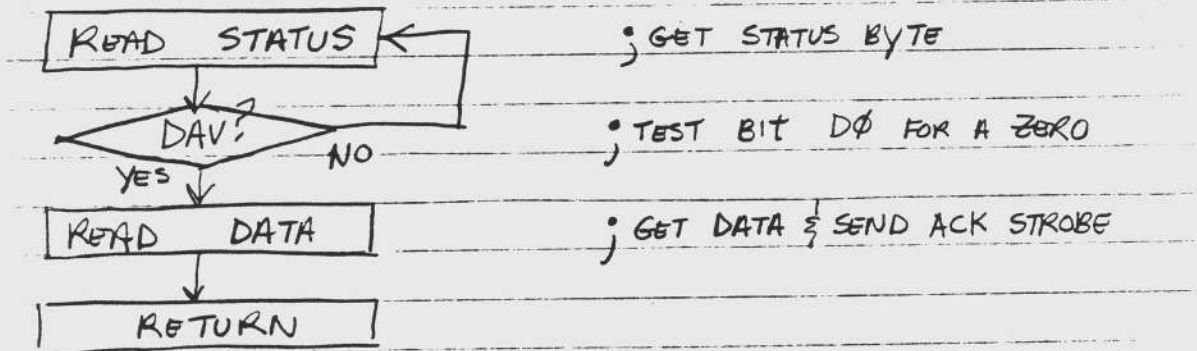 READ STATUS ; GET STATUS BYTE
DAV? ; TEST BIT DØ FOR A ZERO
NO
YES
READ DATA ; GET DATA & SEND ACK STROBE
RETURN